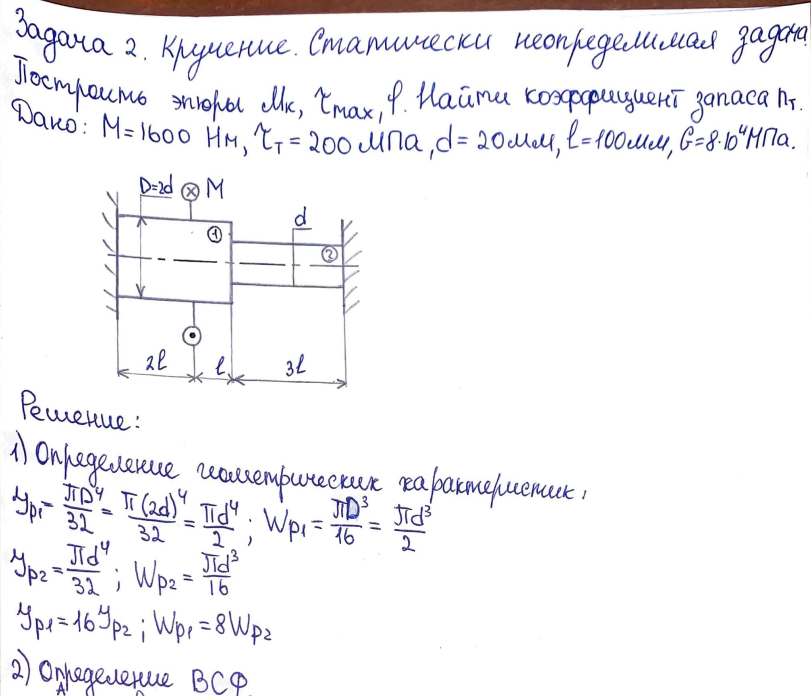 Задача 2. Кручение. Статически неопределимая задача.
Построить эпюры Мк, τmax, φ. Найти коэффициент запаса nт.
Дано: М=1600 Нм, τт=200 МПа, d=20мм, l=100мм, G=8·10⁴МПа.
D=2d M
d
1
2
2l l 3l
Решение:
1) Определение геометрических характеристик:
Jp1=πD⁴/32=π(2d)⁴/32=πd⁴/2; Wp1=πD³/16=πd³/2
Jp2=πd⁴/32; Wp2=πd³/16
Jp1=16Jp2; Wp1=8Wp2
2) Определение ВСФ.